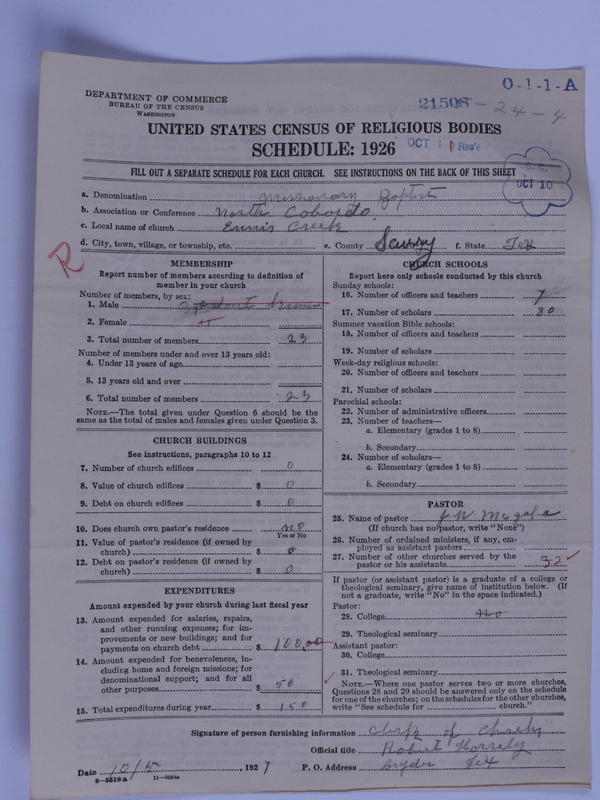 O-1-1-A
DEPARTMENT OF COMMERCE
BUREAU OF THE CENSUS
WASHINGTON
21508 - 24-4
UNITED STATES CENSUS OF RELIGIOUS BODIES
SCHEDULE: 1926
OCT 1 Rec'd
FILL OUT A SEPARATE SCHEDULE FOR EACH CHURCH. SEE INSTRUCTIONS ON THE BACK OF THIS SHEET
OCT 10
a. Denomination Missionary Baptist
b. Association or Conference North Coborado
c. Local name of church Ennis Creek
d. City, town, village, or township, etc. e. County Scurry f. State Tex
R
MEMBERSHIP
Report number of members according to definition of
member in your church
Number of members, by sex:
1. Male
2. Female
3. Total number of members 23
Number of members under and over 13 years old:
4. Under 13 years of age
5. 13 years old and over
6. Total number of members 23
NOTE.—The total given under Question 6 should be the
same as the total of males and females given under Question 3.
CHURCH BUILDINGS
See instructions, paragraphs 10 to 12
7. Number of church edifices 0
8. Value of church edifices $ 0
9. Debt on church edifices $ 0
10. Does church own pastor's residence No
Yes or No
11. Value of pastor's residence (if owned by
church) $ 0
12. Debt on pastor's residence (if owned by
church) $ 0
EXPENDITURES
Amount expended by your church during last fiscal year
13. Amount expended for salaries, repairs,
and other running expenses; for im-
provements or new buildings; and for
payments on church debt $ 100.00
14. Amount expended for benevolences, in-
cluding home and foreign missions; for
denominational support; and for all
other purposes $ 50
15. Total expenditures during year $ 150
CHURCH SCHOOLS
Report here only schools conducted by this church
Sunday schools:
16. Number of officers and teachers 7
17. Number of scholars 80
Summer vacation Bible schools:
18. Number of officers and teachers
19. Number of scholars
Week-day religious schools:
20. Number of officers and teachers
21. Number of scholars
Parochial schools:
22. Number of administrative officers
23. Number of teachers—
a. Elementary (grades 1 to 8)
b. Secondary
24. Number of scholars—
a. Elementary (grades 1 to 8)
b. Secondary
PASTOR
25. Name of pastor
(If church has no pastor, write "None")
26. Number of ordained ministers, if any, em-
ployed as assistant pastors
27. Number of other churches served by the
pastor or his assistants 32
If pastor (or assistant pastor) is a graduate of a college or
theological seminary, give name of institution below. (If
not a graduate, write "No" in the space indicated.)
Pastor:
28. College No
29. Theological seminary
Assistant pastor:
30. College
31. Theological seminary
NOTE.—Where one pastor serves two or more churches,
Questions 28 and 29 should be answered only on the schedule
for one of the churches; on the schedules for the other churches,
write "See schedule for church."
Signature of person furnishing information Clerk of Church
Official title Robert Horsely
Date 10/5, 1927 P. O. Address Snyder Tex
8-5518a 11-9024a